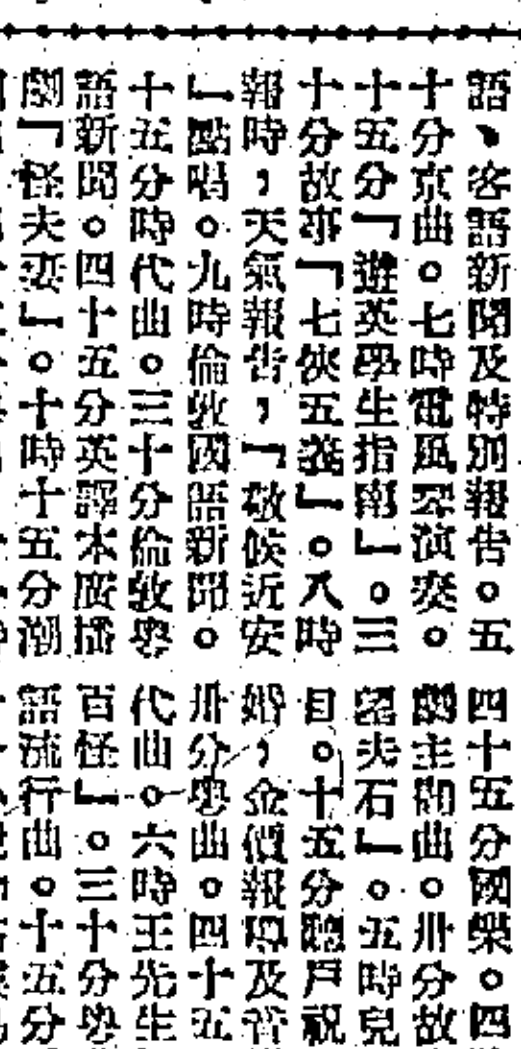 語、客語新聞及特別報告。五
十分京曲。七時電風琴演奏。
十五分「遊英學生指南」。三
十分故事「七俠五義」。八時
報時,天氣報告,「敬候近安
」點唱。九時倫敦國語新聞。
十五分時代曲。三十分倫敦粤
語新聞。四十五分英譯本廣播
劇「怪夫妻」。十時十五分潮
四十五分國樂。四
主曲。卅分故
夫石」。五時兒
目。十五分聽戶祝
婚,金價報導及音
卅分粤曲。四十五
代曲。六時王先生
百怪」。三十分粤
語流行曲。十五分